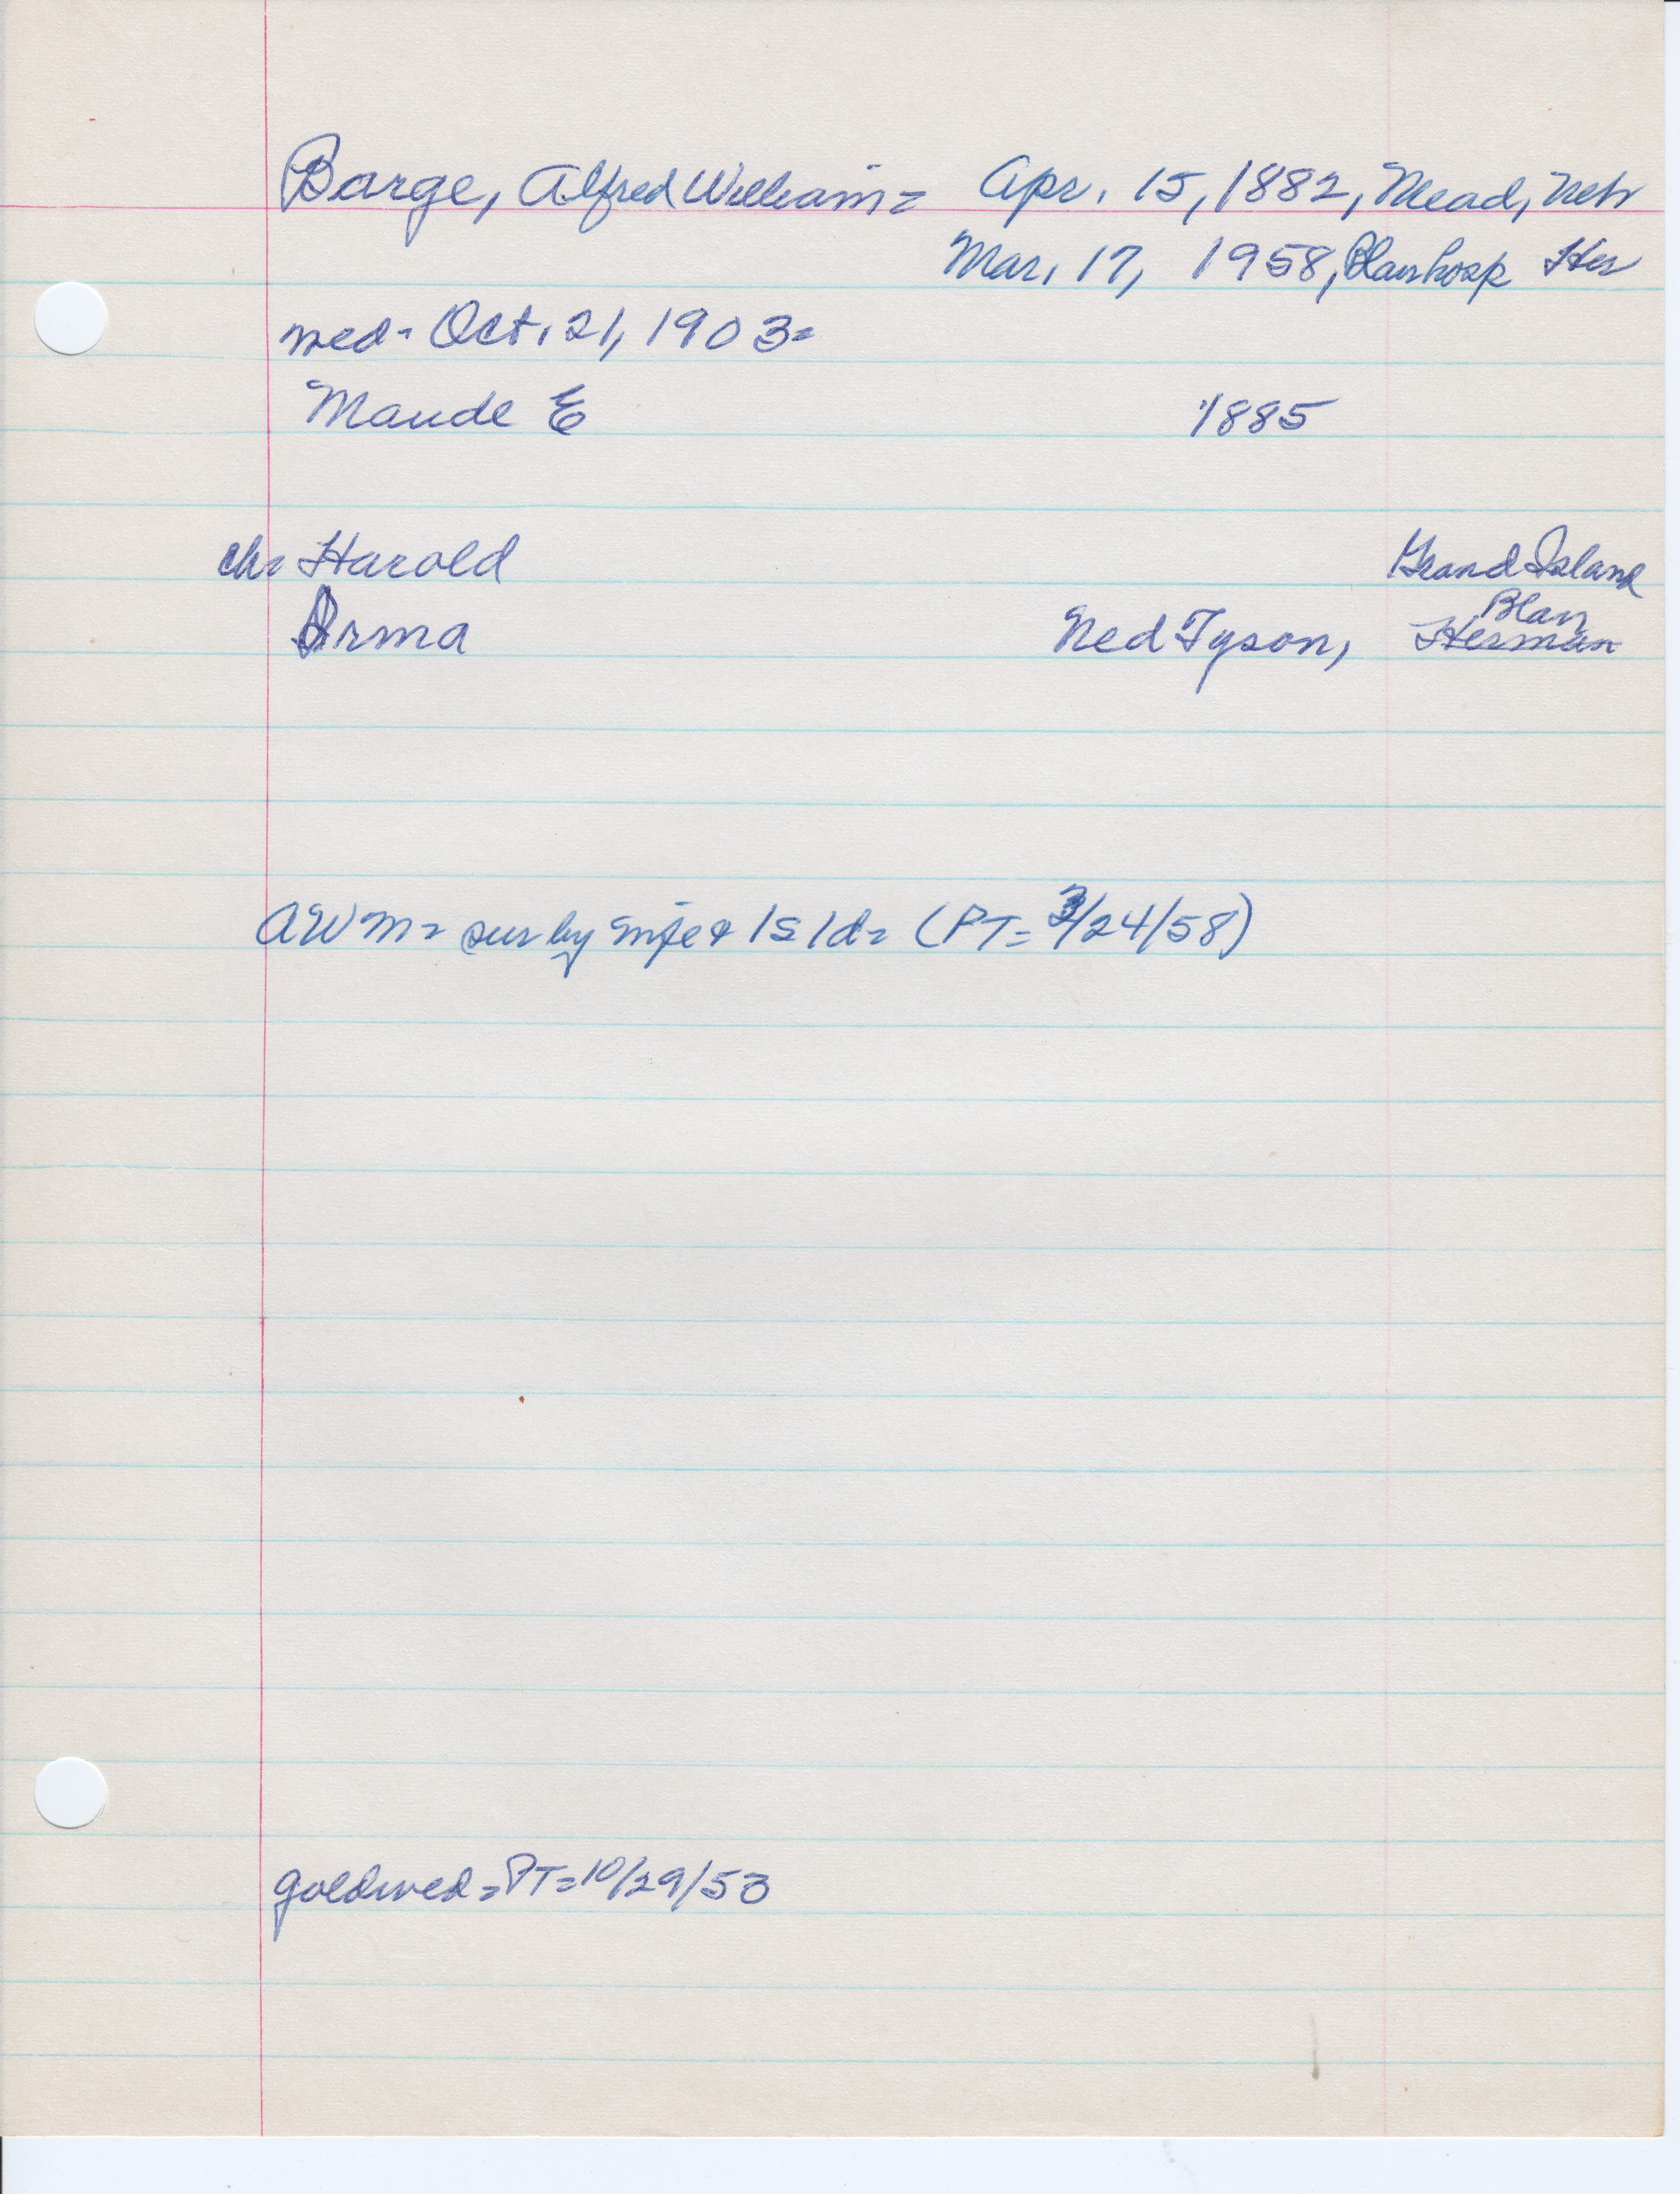 Barge, Alfred William= Apr. 15, 1882, Mead, Neb
Mar. 17, 1958, Blair hosp Her
wed- Oct. 21, 1903=
Maude E 1885
ch= Harold Grand Island
Blair
Irma Ned Tyson, Herman
AWm= sur by wife & 1s 1d= (PT= 3/24/58)
goldwed=PT=10/29/53